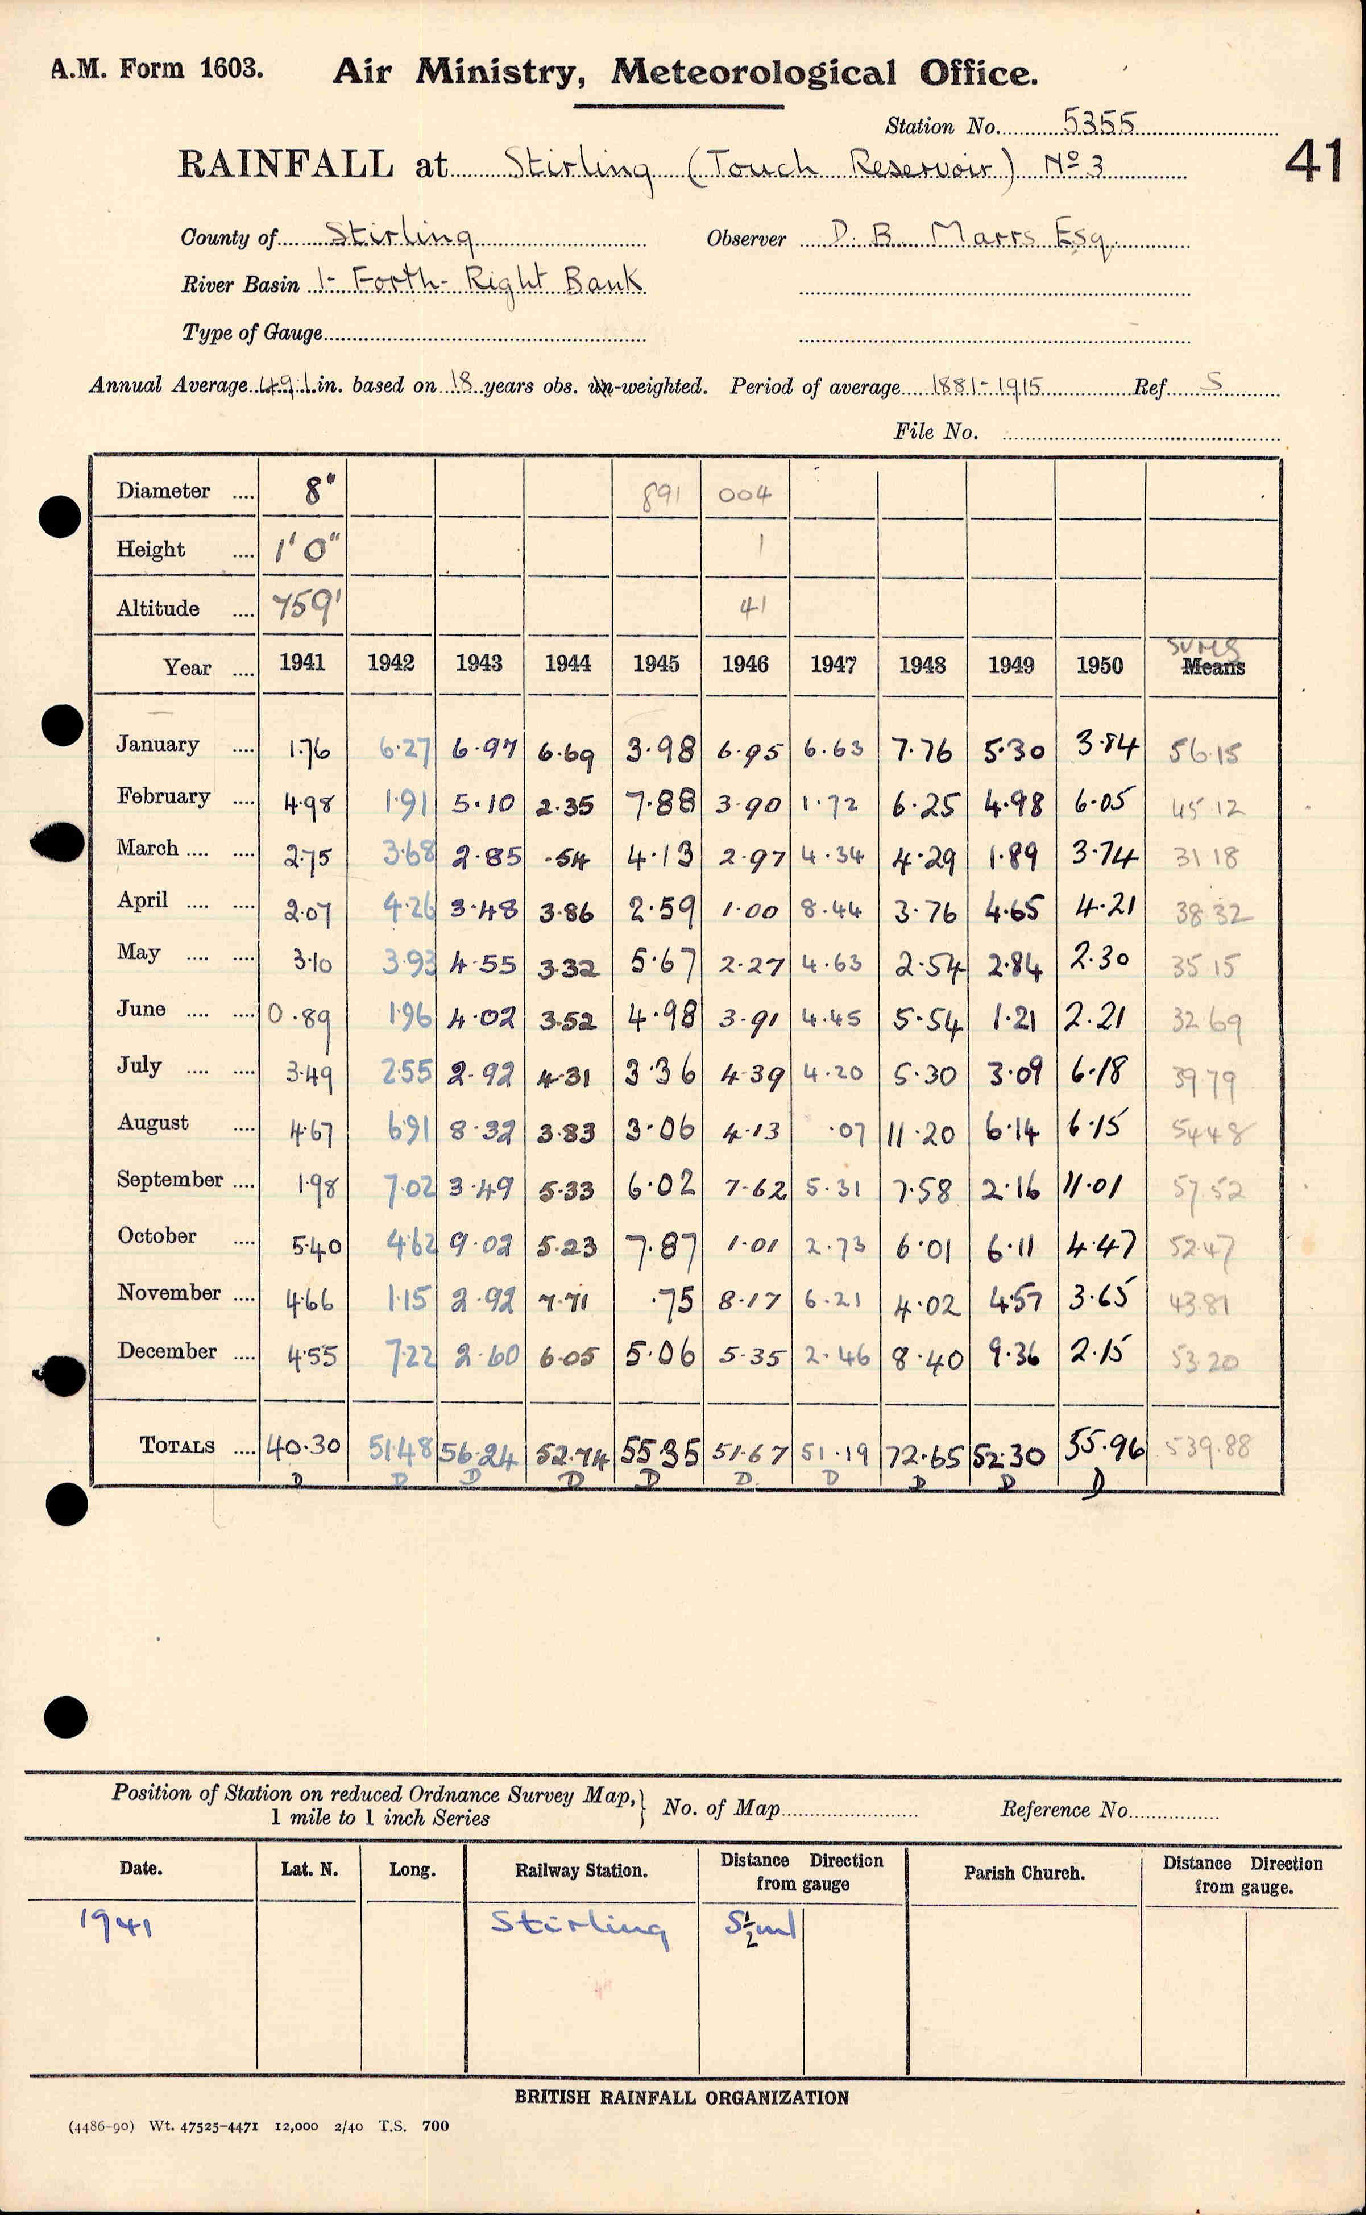 A.M. Form 1603. Air Ministry, Meteorological Office.
Station No. 5355
RAINFALL at Stirling (Touch Reservoir) Nº 3
41
County of Stirling Observer D. B. Marrs Esq.
River Basin 1- Forth- Right Bank
Type of Gauge
Annual Average 49.1 in. based on 18 years obs. un-weighted. Period of average 1881-1915 Ref S
File No.
Diameter .... 8" 891 004
Height .... 1' 0" 1
Altitude .... 759' 41
Year .... 1941 1942 1943 1944 1945 1946 1947 1948 1949 1950 SUMS Means
January .... 1.76 6.27 6.97 6.69 3.98 6.95 6.63 7.76 5.30 3.84 56.15
February .... 4.98 1.91 5.10 2.35 7.88 3.90 1.72 6.25 4.98 6.05 45.12
March .... .... 2.75 3.68 2.85 .54 4.13 2.97 4.34 4.29 1.89 3.74 31 18
April .... .... 2.07 4.26 3.48 3.86 2.59 1.00 8.44 3.76 4.65 4.21 38.32
May .... .... 3.10 3.93 4.55 3.32 5.67 2.27 4.63 2.54 2.84 2.30 35 15
June .... .... 0.89 1.96 4.02 3.52 4.98 3.91 4.45 5.54 1.21 2.21 32 69
July .... .... 3.49 2.55 2.92 4.31 3.36 4.39 4.20 5.30 3.09 6.18 39.79
August .... 4.67 6.91 8.32 3.83 3.06 4.13 .07 11.20 6.14 6.15 54.48
September .... 1.98 7.02 3.49 5.33 6.02 7.62 5.31 7.58 2.16 11.01 57.52
October .... 5.40 4.62 9.02 5.23 7.87 1.01 2.73 6.01 6.11 4.47 52.47
November .... 4.66 1.15 2.92 7.71 .75 8.17 6.21 4.02 4.57 3.65 43.81
December .... 4.55 7.22 2.60 6.05 5.06 5.35 2.46 8.40 9.36 2.15 53.20
TOTALS .... 40.30 51.48 56.24 52.74 55 35 51.67 51.19 72.65 52.30 55.96 539.88
D D D D D D D D D D
Position of Station on reduced Ordnance Survey Map, } No. of Map Reference No.
1 mile to 1 inch Series
Date. Lat. N. Long. Railway Station. Distance Direction from gauge Parish Church. Distance Direction from gauge.
1941 Stirling 5½ml
BRITISH RAINFALL ORGANIZATION
(4486-90) Wt. 47525-4471 12,000 2/40 T.S. 700